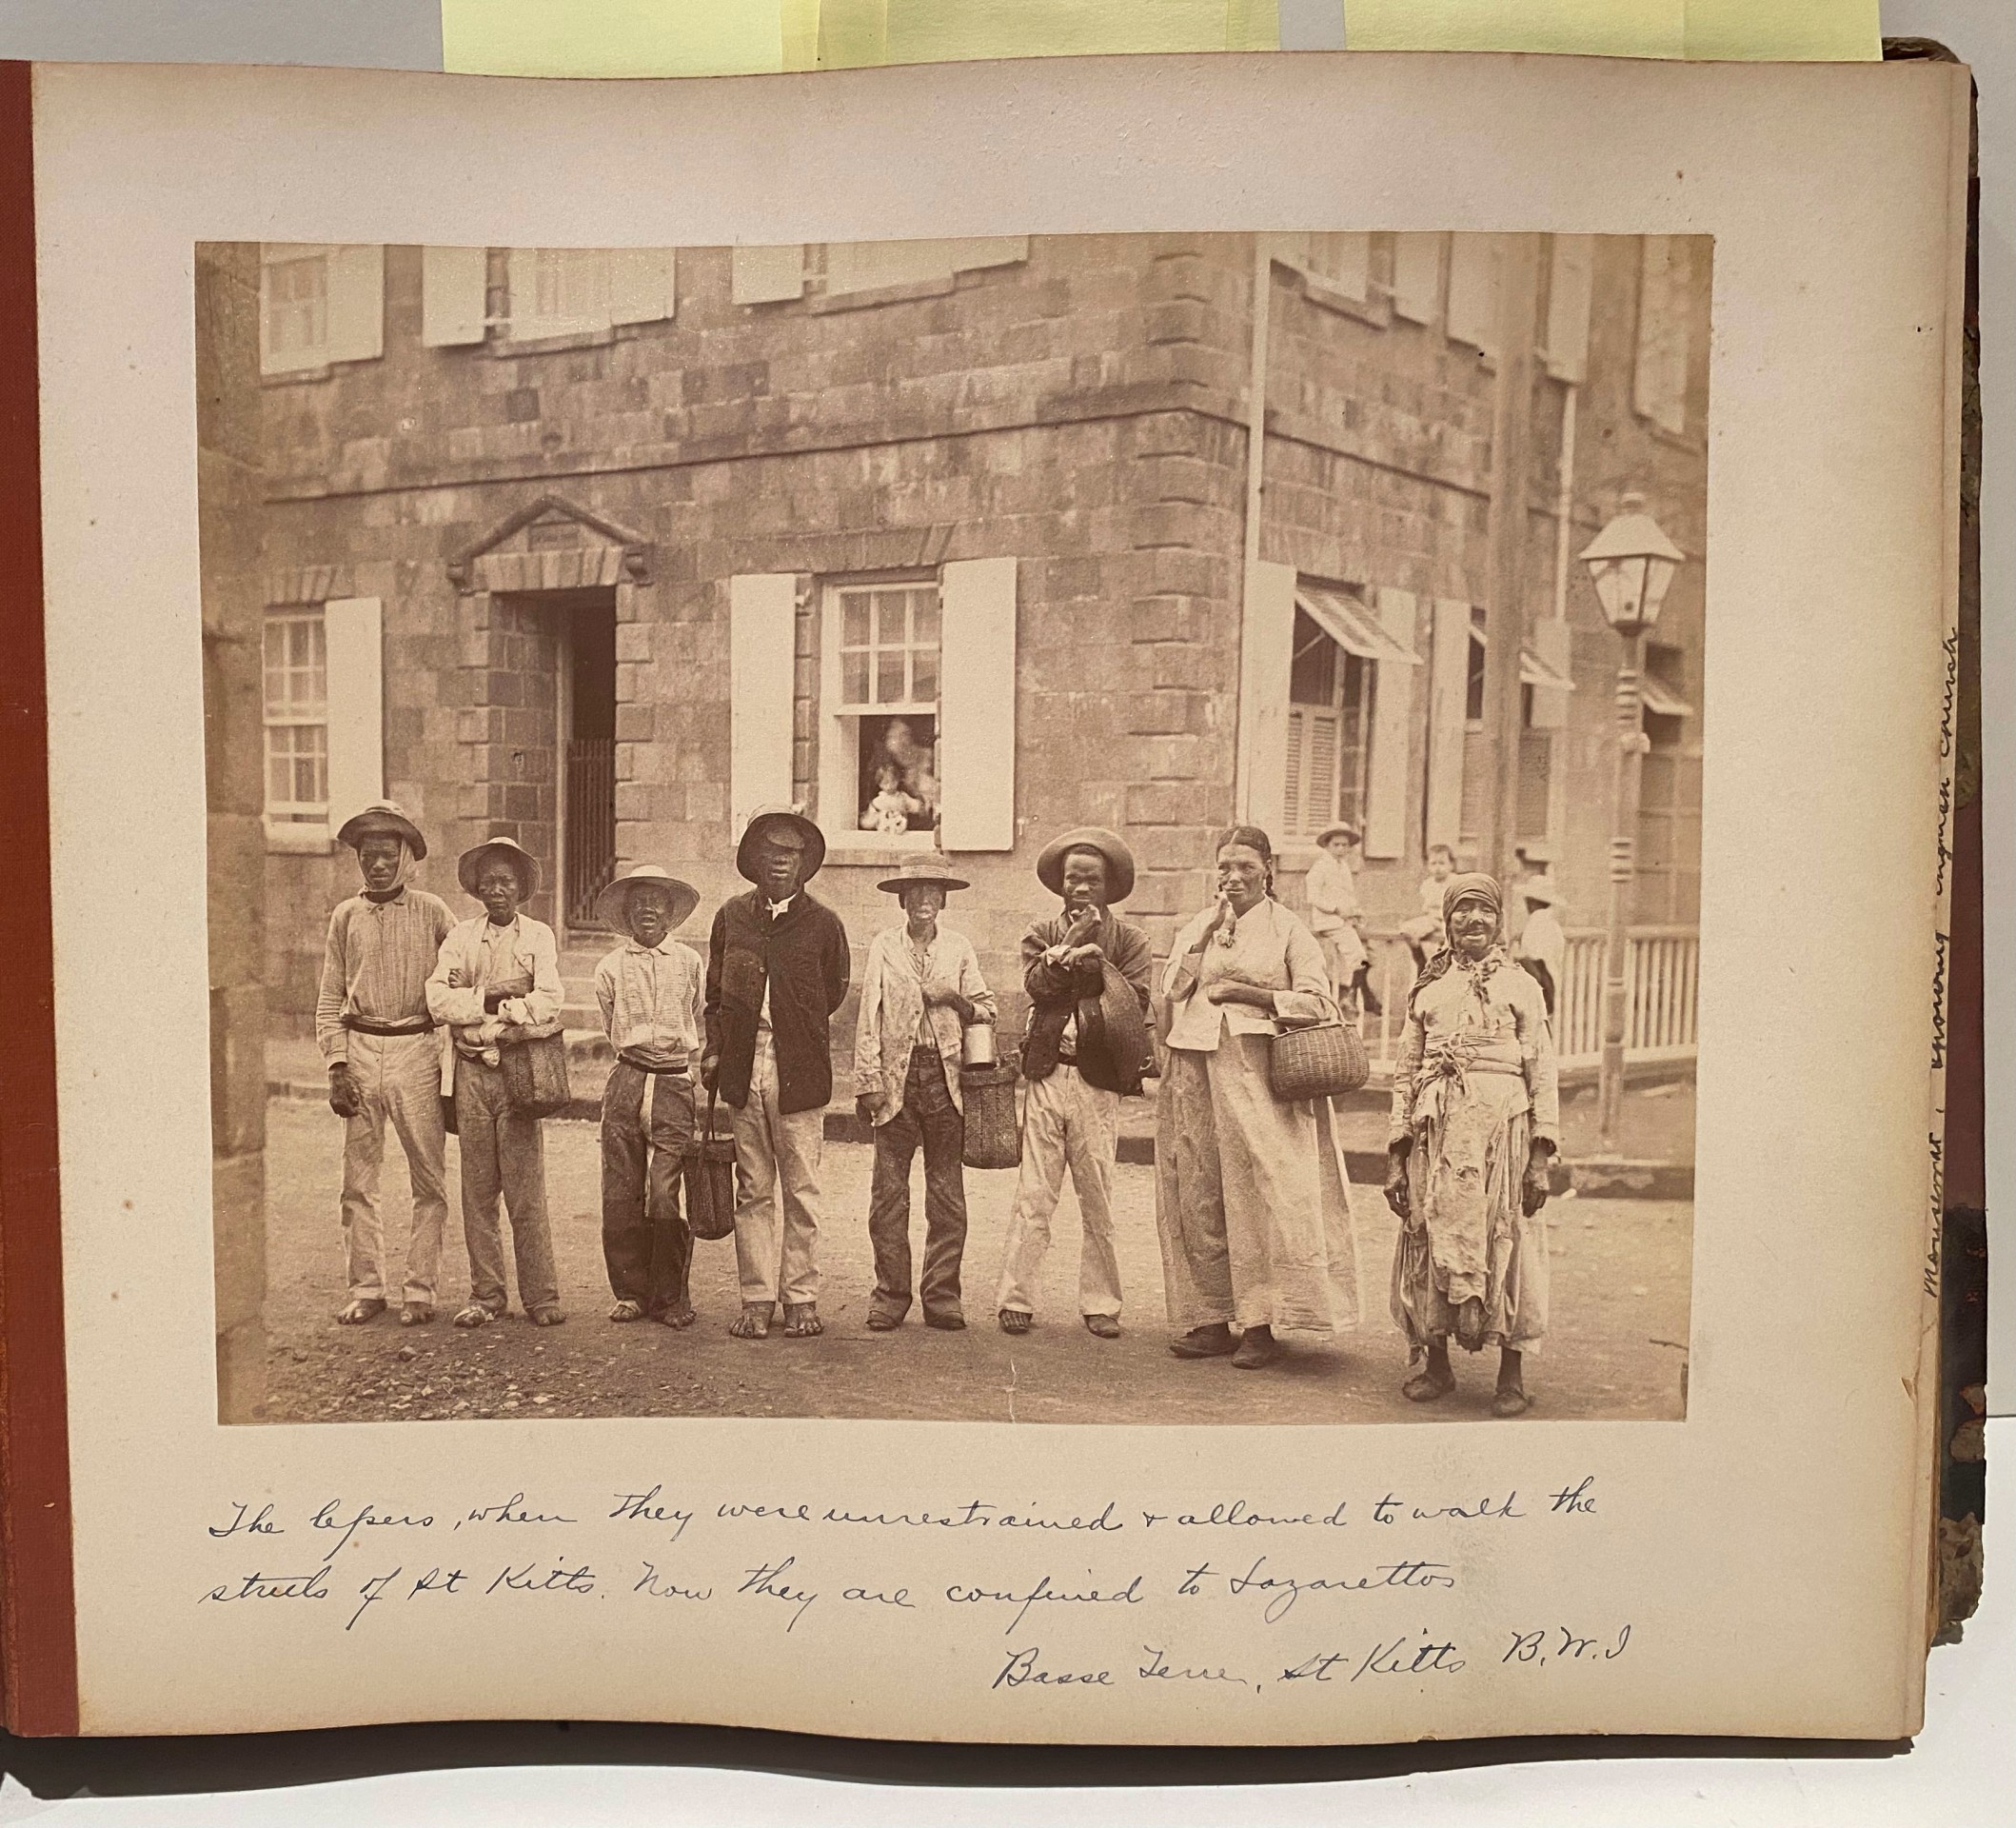 The lepers, when they were unrestrained & allowed to walk the
streets of St Kitts. Now they are confined to Lazarettos
Basse Terre, St Kitts B.W.I
Montserrat, church